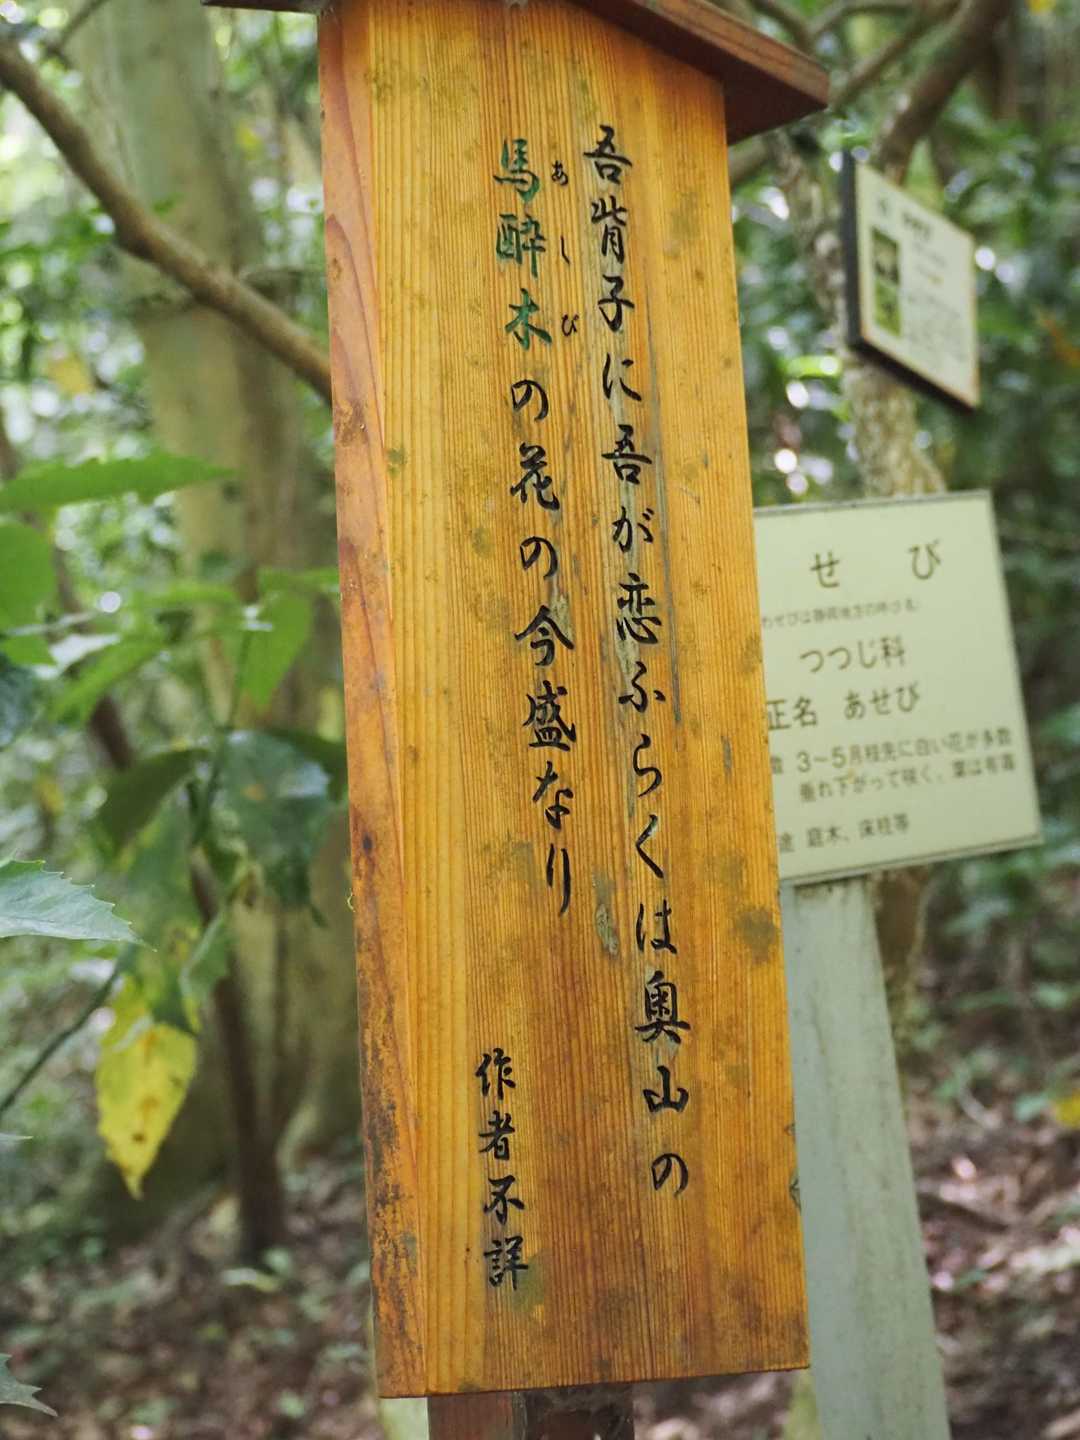 吾背子に吾が恋ふらくは奥山の
あしび
馬酔木の花の今盛なり
作者不詳
せび
つつじ科
正名 あせび
3～5月枝先に白い花が多数
垂れ下がって咲く、葉は有毒
途 庭木、床柱等